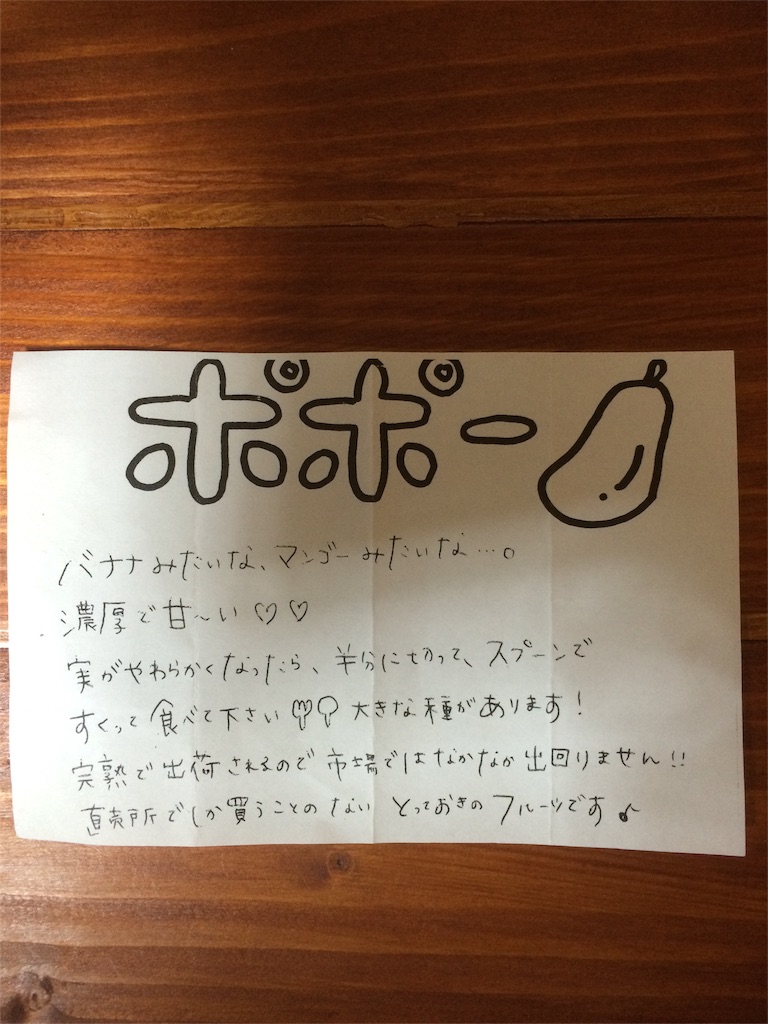 ポポー
バナナみたいな、マンゴーみたいな…。
濃厚で甘〜い♡♡
実がやわらかくなったら、半分に切って、スプーンで
すくって食べて下さい 大きな種があります!
完熟で出荷されるので市場ではなかなか出回りません!!
直売所でしか買うことのない とっておきのフルーツです♪